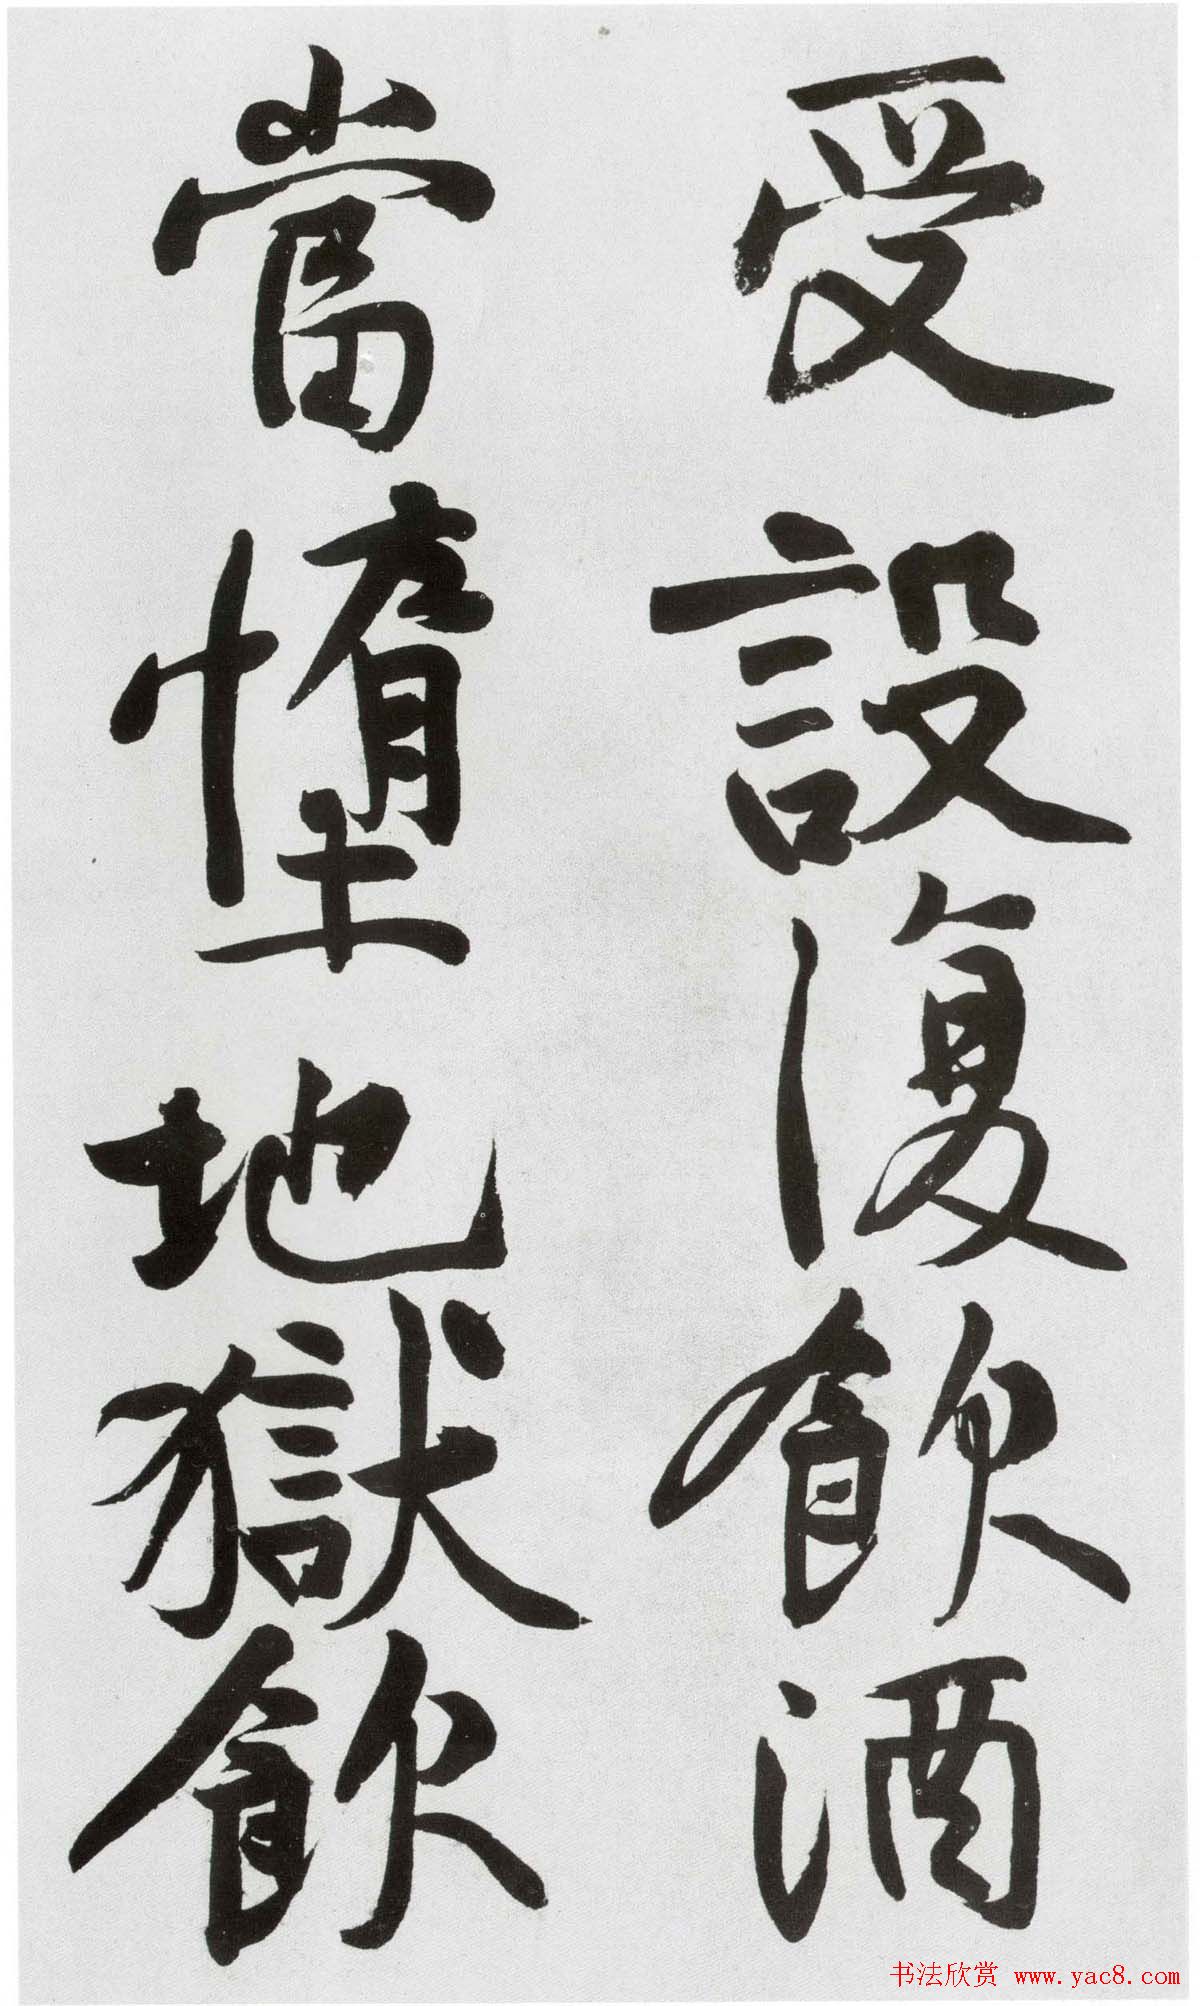 受設復飲酒
當墮地獄飲
书法欣赏 www.yac8.com